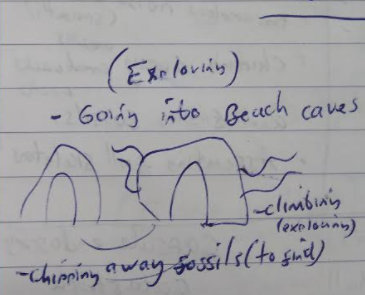 (Exploring)
- Going into Beach caves
- climbing
(exploring)
- Chipping away fossils (to find)